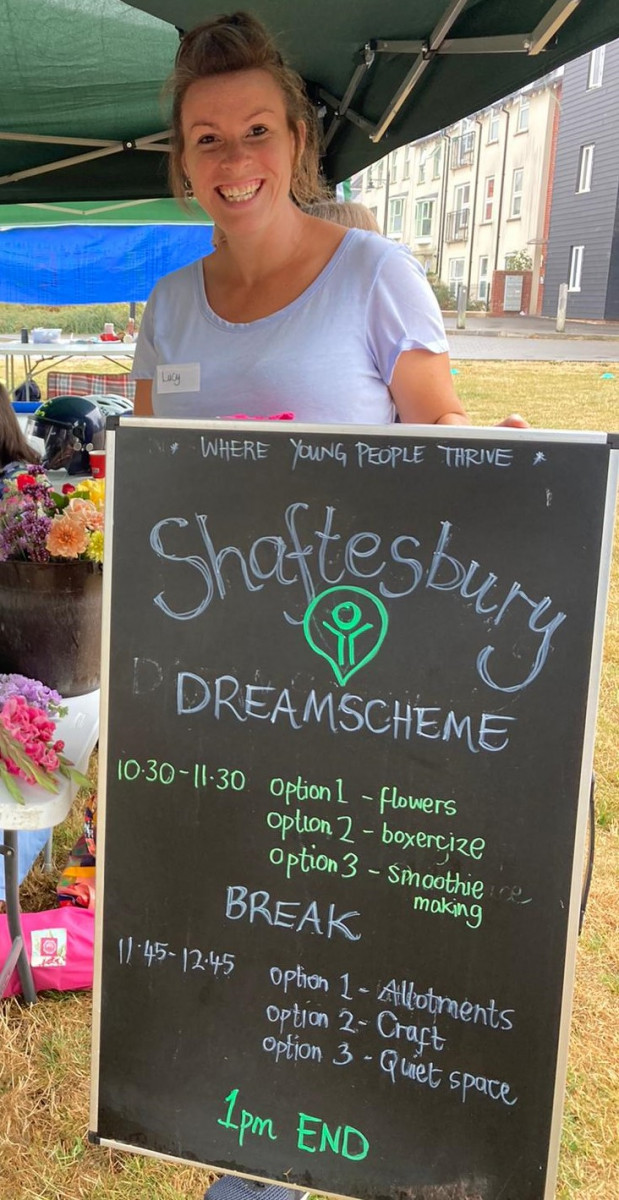 Lucy
* WHERE YOUNG PEOPLE THRIVE *
Shaftesbury
DREAMSCHEME
10.30-11.30 option 1 - flowers
option 2 - boxercize
option 3 - smoothie
making
BREAK
11.45-12.45
option 1 - Allotments
option 2 - Craft
option 3 - Quiet space
1pm END